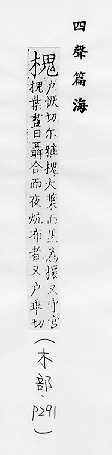 四聲篇海
槐户恢切尔雅櫰大葉而黑爲櫰又守宫
槐葉晝日聶合而夜炕布者又户乖切
(木部.P291)